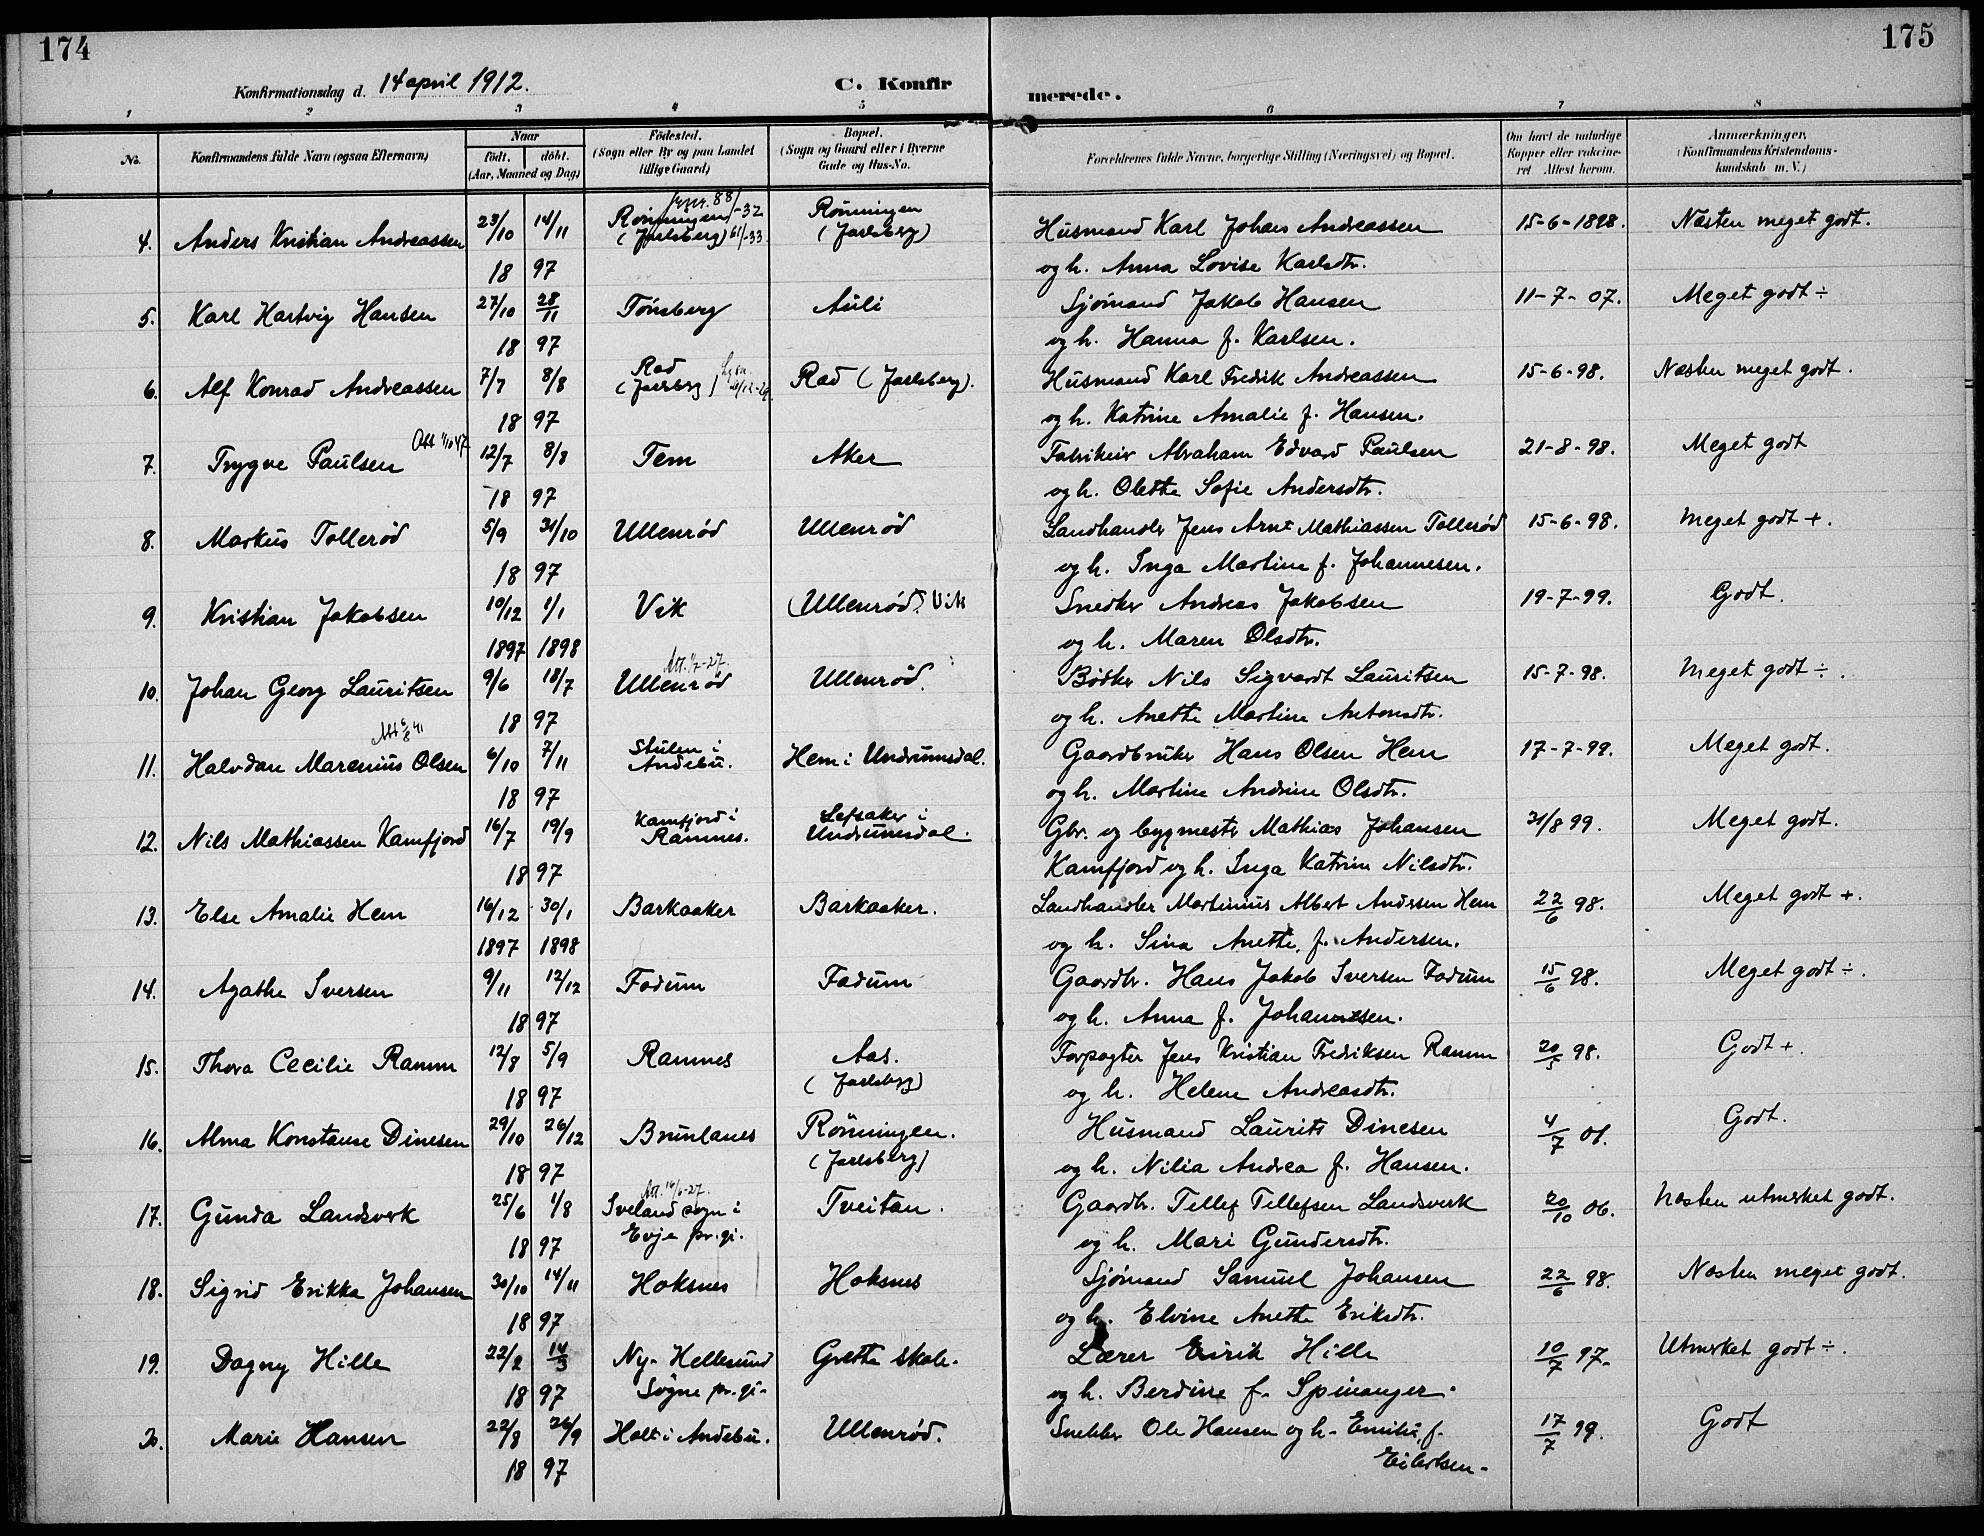 174
175
Konfirmationsdag d. 14 april 1912.
C. Konfirmerede.
1 2 3 4 5 6 7 8
No.
Konfirmandens fulde Navn (ogsaa Efternavn)
Naar
födt. döbt.
(Aar, Maaned og Dag)
Födested.
(Sogn eller By og paa Landet
tillige Gaard)
Bopæl.
(Sogn og Gaard eller i Byerne
Gade og Hus-No.
Forældrenes fulde Navne, borgerlige Stilling (Næringsvei) og Bopæl.
Om havt de naturlige
Kopper eller vakcine-
ret. Attest herom.
Anmærkninger.
(Konfirmandens Kristendoms-
kundskab m. V.)
88/-32
4. Anders Kristian Andreassen 23/10 14/11 Rønningen (Jarlsberg) 61/-33 Rönningen (Jarlsberg) Husmand Karl Johans Andreassen 15-6-1898. Næsten meget godt.
18 97 og h. Anna Lovise Karlsdtr.
5. Karl Hartvig Hansen 27/10 28/11 Tönsberg Auli Sjömand Jakob Hansen 11-7-07. Meget godt ÷
18 97 og h. Hanna f. Karlsen.
6. Alf Konrad Andreassen 7/7 8/8 Rad (Jarlsberg) Rad (Jarlsberg). Husmand Karl Fredrik Andreassen 15-6-98. Næsten meget godt.
18 97 og h. Katrine Amalie f. Hansen.
7. Trygve Paulsen 12/7 8/8 Tem Aker Fabrikeier Abraham Edvard Paulsen 21-8-98. Meget godt
18 97 og h. Olette Sofie Andersdtr.
8. Markus Tollerød 5/9 31/10 Ullenrød Ullenrød Landhandler Jens Arnt Mathiassen Tollerød 15-6-98. Meget godt +.
18 97 og h. Inga Martine f. Johannesen.
9. Kristian Jakobsen 10/12 1/1 Vik (Ullenrød) Vik Snedker Andreas Jakobsen 19-7-99. Godt.
1897 1898 og h. Maren Olsdtr.
Att. 1/7-27.
10. Johan Georg Lauritsen 9/6 18/7 Ullenrød Ullenrød. Bødker Nils Sigvardt Lauritsen 15-7-98. Meget godt ÷.
18 97 og h. Anette Martine Antonsdtr.
11. Halvdan Marenius Olsen 6/10 7/11 Stulen i Andebu. Hem i Undrumsdal. Gaardbruker Hans Olsen Hem 17-7-99. Meget godt.
18 97 og h. Martine Andrine Olsdtr.
12. Nils Mathiassen Kamfjord 16/7 19/9 Kamfjord i Ramnes. Lefsaker i Undrumsdal. Gbr. og bygmester Mathias Johansen 31/8 99. Meget godt.
18 97 Kamfjord og h. Inga Katrine Nilsdtr.
13. Else Amalie Hem 16/12 30/1 Barkaaker Barkaaker. Landhandler Martinius Albert Andersen Hem 22/6 98. Meget godt +.
1897 1898 og h. Sina Anette, f. Andersen.
14. Agathe Iversen 9/11 12/12 Fodum Fadum Gaardbr. Hans Jakob Iversen Fadum 15/6 98. Meget godt ÷.
18 97 og h. Anna f. Johannesen.
15. Thora Cecilie Ramm 12/8 5/9 Ramnes Aas. (Jarlsberg) Forpagter Jens Kristian Fredriksen Ramm 20/5 98. Godt +.
18 97 og h. Helene Andreasdtr.
16. Alma Konstanse Dinesen 29/10 26/12 Brunlanes Rönningen. (Jarlsberg) Husmand Laurits Dinesen 4/7 01. Godt.
18 97 og h. Nilia Andrea f. Hansen.
17. Gunda Landsverk 25/6 1/8 Iveland sogn i Evje pr.gj. Tveitan. Gaardbr. Tellef Tellefsen Landsverk 20/10 06. Næsten utmerket godt.
18 97 og h. Mari Gundersdtr.
18. Sigrid Erikka Johansen 30/10 14/11 Hoksnes Hoksnes Sjömand Samuel Johansen 22/6 98. Næsten meget godt.
18 97 og h. Elvine Anette Eriksdtr.
19. Dagny Hille 22/2 14/3 Ny-Hellesund Søgne pr.gj. Grette skole. Lærer Eirik Hille 10/7 97. Utmerket godt ÷.
18 97 og h. Berdine f. Spinanger.
20. Marie Hansen 22/8 26/9 Holt i Andebu. Ullenrød. Snekker Ole Hansen og h. Emilie, f. 17/7 99. Godt
18 97 Eilertsen.